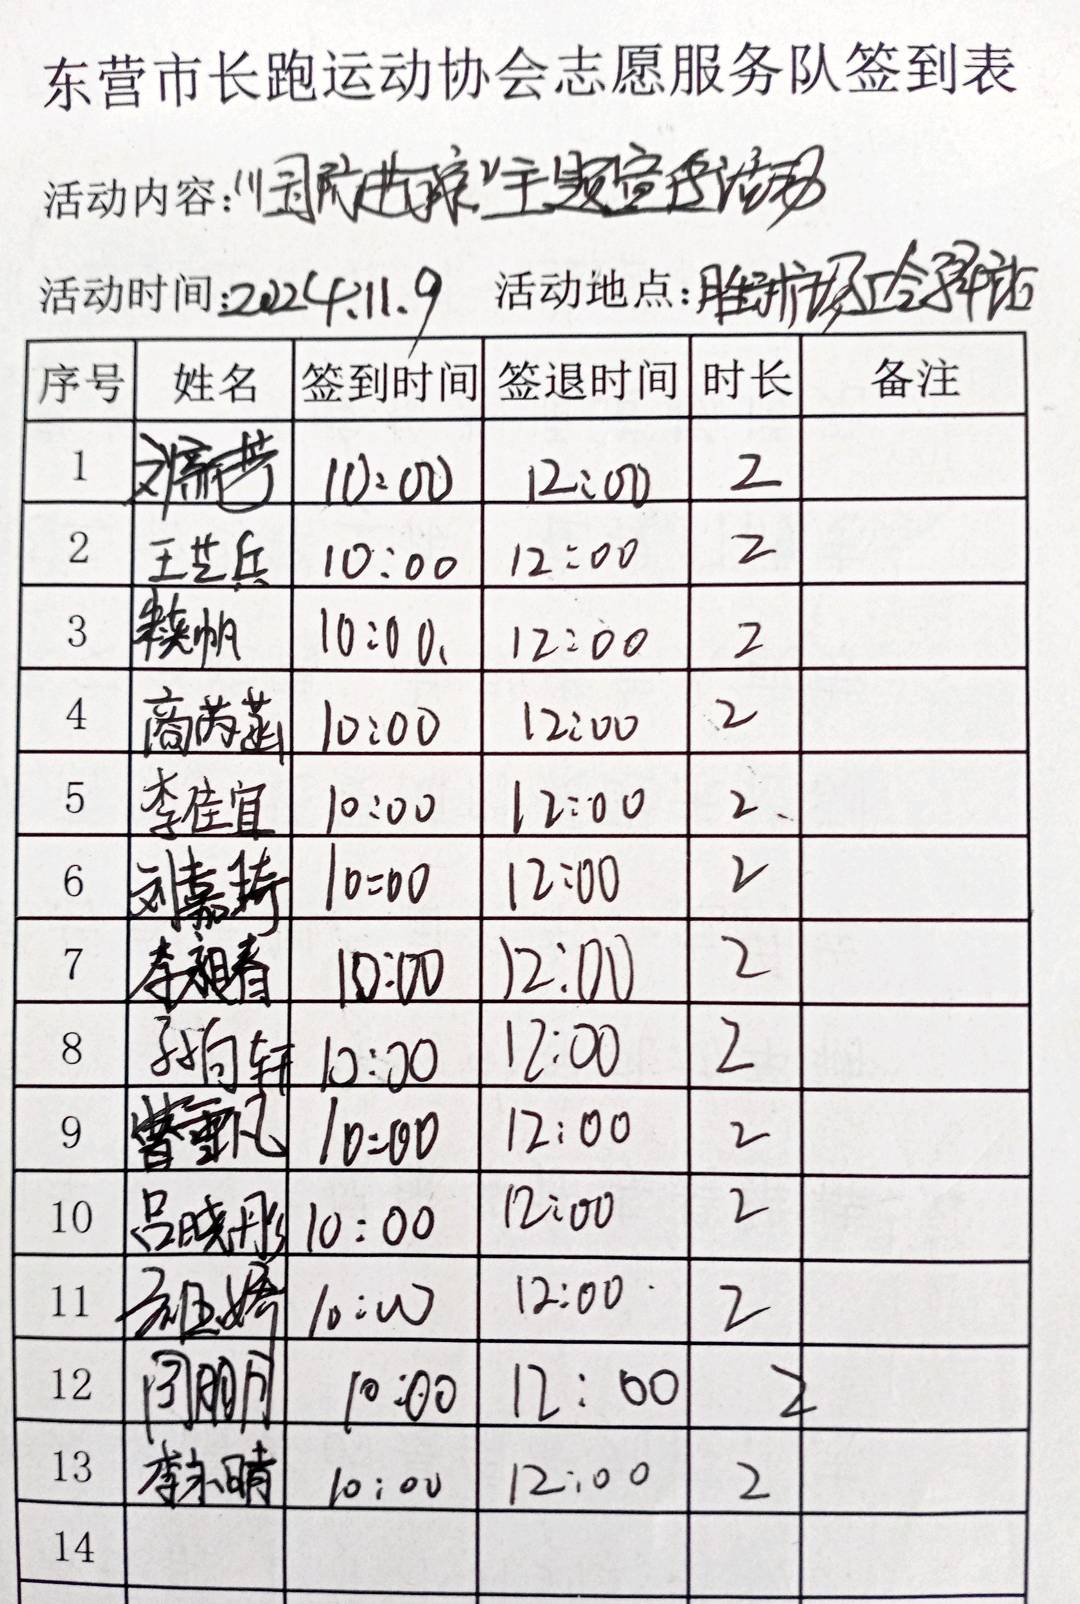 东营市长跑运动协会志愿服务队签到表
活动内容:"国防进 "主题宣传活动
活动时间:2024.11.9 活动地点:胜利
序号 姓名 签到时间 签退时间 时长 备注
1 刘 芸 10:00 12:00 2
2 王芝兵 10:00 12:00 2
3 帆 10:00 12:00 2
4 商芮菡 10:00 12:00 2
5 李佳宜 10:00 12:00 2
6 刘嘉琦 10:00 12:00 2
7 李 春 10:00 12:00 2
8 孙向轩 10:00 12:00 2
9 曹雪凡 10:00 12:00 2
10 吕晓彤 10:00 12:00 2
11 10:00 12:00 2
12 闫明月 10:00 12:00 2
13 李 晴 10:00 12:00 2
14